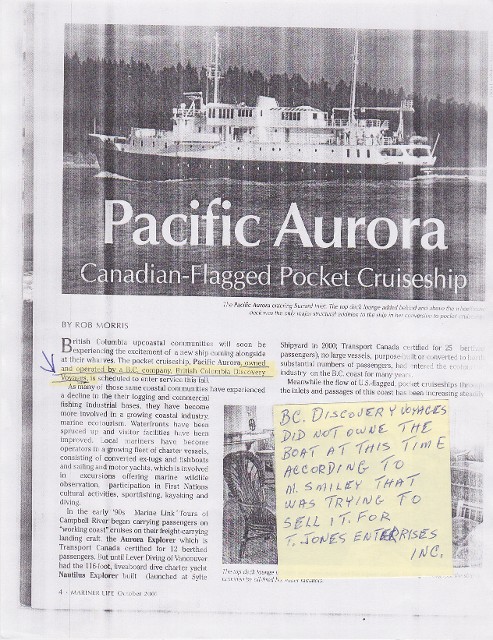 Pacific Aurora
Canadian-Flagged Pocket Cruiseship
The Pacific Aurora entering Burrard Inlet. The top deck lounge added behind and above the wheelhouse
deck was the only major structural address to the ship in her conversion to pocket
BY ROB MORRIS
British Columbia upcoastal communities will soon be
experiencing the excitement of a new ship coming alongside
at their wharves. The pocket cruiseship, Pacific Aurora, owned
and operated by a B.C. company, British Columbia Discovery
Voyages, is scheduled to enter service this fall.
As many of those same coastal communities have experienced
a decline in the their logging and commercial
fishing industrial bases, they have become
more involved in a growing coastal industry,
marine ecotourism. Waterfronts have been
spruced up and visitor facilities have been
improved. Local mariners have become
operators in a growing fleet of charter vessels,
consisting of converted ex-tugs and fishboats
and sailing and motor yachts, which is involved
in excursions offering marine wildlife
observation, participation in First Nations
cultural activities, sportfishing, kayaking and
diving.
In the early '90s Marine Link Tours of
Campbell River began carrying passengers on
"working coast" cruises on their freight-carrying
landing craft, the Aurora Explorer which is
Transport Canada certified for 12 berthed
passengers. But until Lever Diving of Vancouver
had the 116 foot, liveaboard dive charter yacht
Nautilus Explorer built (launched at Sylte
Shipyard in 2000; Transport Canada certified for 25 berthed
passengers), no large vessels, purpose-built or converted to berth
substantial numbers of passengers, had entered the
industry on the B.C. coast for many years.
Meanwhile the flow of U.S.-flagged, pocket cruiseships through
the inlets and passages of this coast has been increasing steadily
BC. DISCOVERY VOYAGES
DID NOT OWNE THE
BOAT AT THIS TIME
ACCORDING TO
M. SMILEY THAT
WAS TRYING TO
SELL IT. FOR
T. JONES ENTERPRISES
INC.
The top deck lounge
4 - MARINER LIFE October 2001